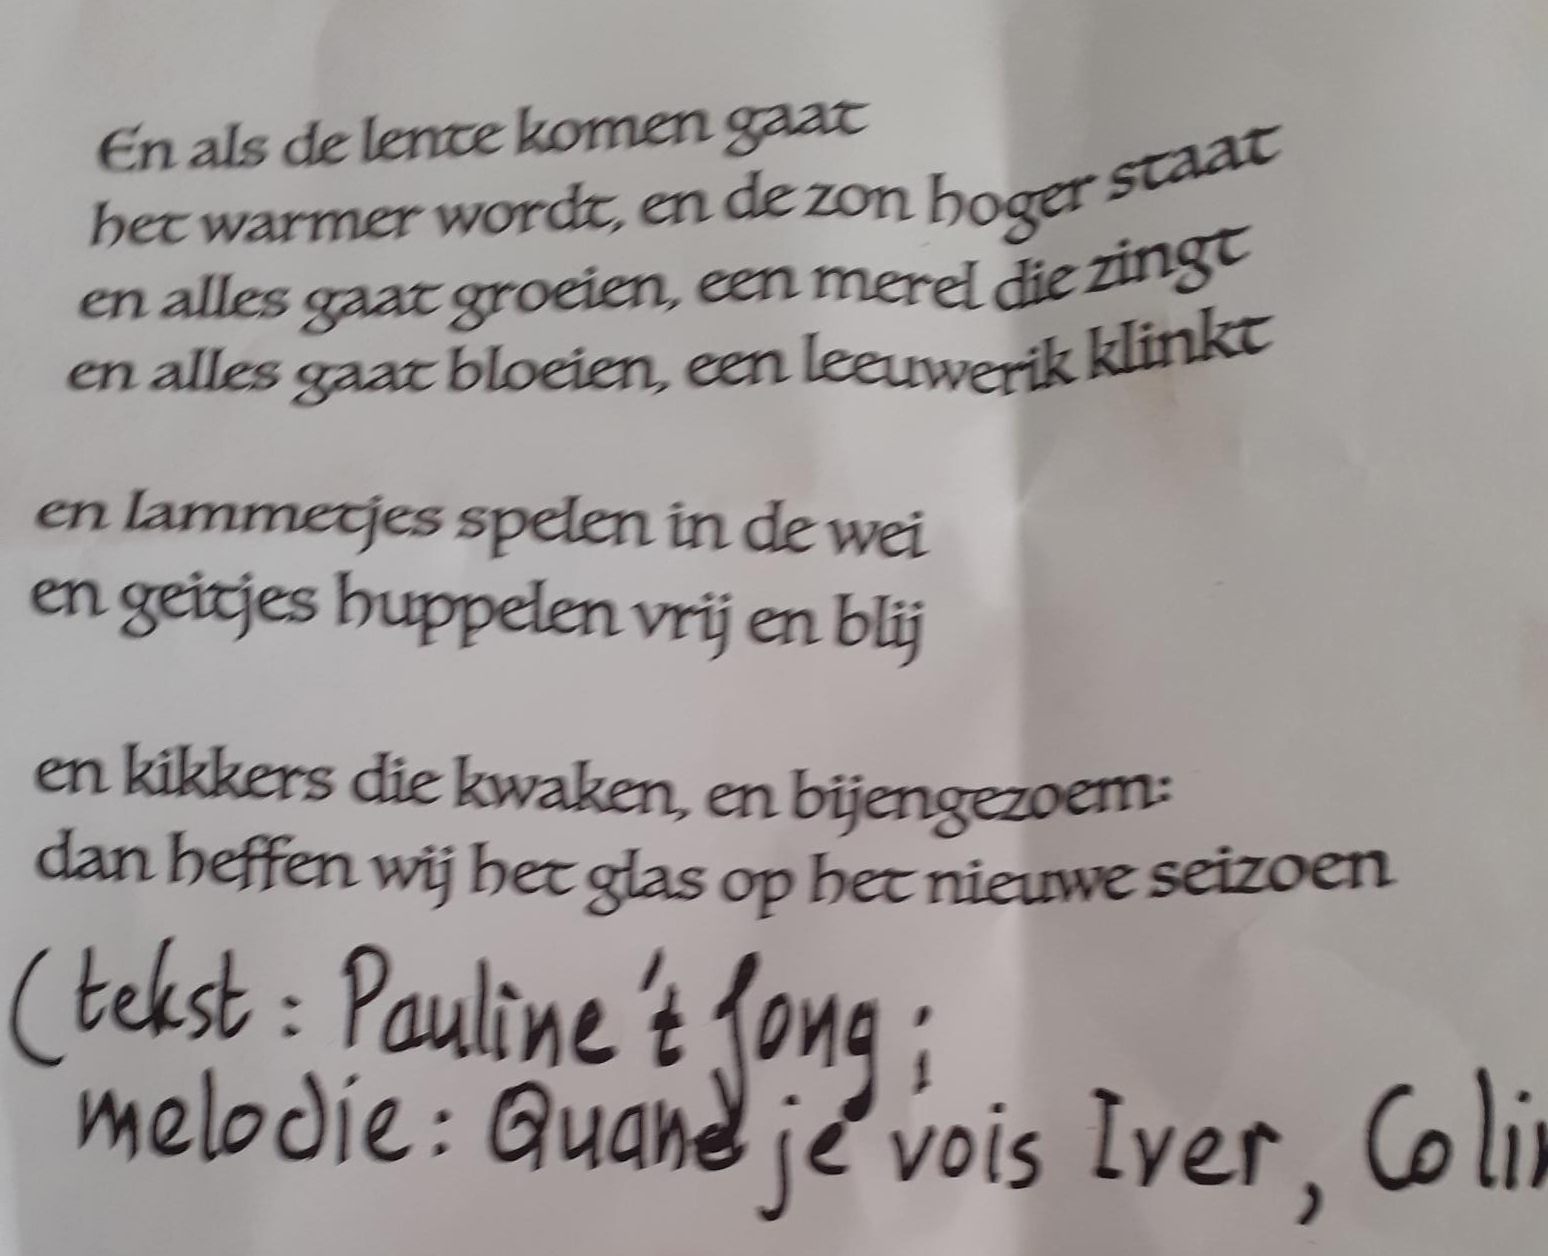 En als de lente komen gaat
het warmer wordt, en de zon hoger staat
en alles gaat groeien, een merel die zingt
en alles gaat bloeien, een leeuwerik klinkt
en lammetjes spelen in de wei
en geitjes huppelen vrij en blij
en kikkers die kwaken, en bijengezoem:
dan heffen wij het glas op het nieuwe seizoen
(tekst: Pauline 't Jong;
melodie: Quand je vois Iver, Colin